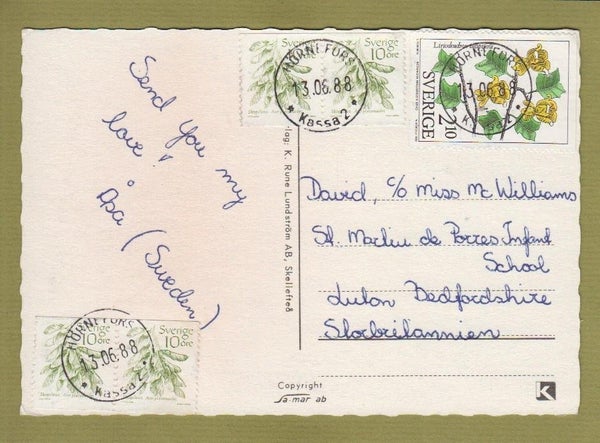 Send you my
love!
Åsa (Sweden)
Sverige
10 öre
Sverige
10 öre
HÖRNEFORS
13.06.88
* Kassa 2 *
Liriodendron tulipifera
SVERIGE 2.10
HÖRNEFORS
13.06.88
* Kassa 2 *
David, c/o Miss McWilliams
St. Martin de Porres Infant
School
Luton Bedfordshire
Storbritannien
Sverige
10 öre
Sverige
10 öre
HÖRNEFORS
13.06.88
* Kassa 2 *
K. Rune Lundström AB, Skellefteå
Copyright
Sa-mar ab
K